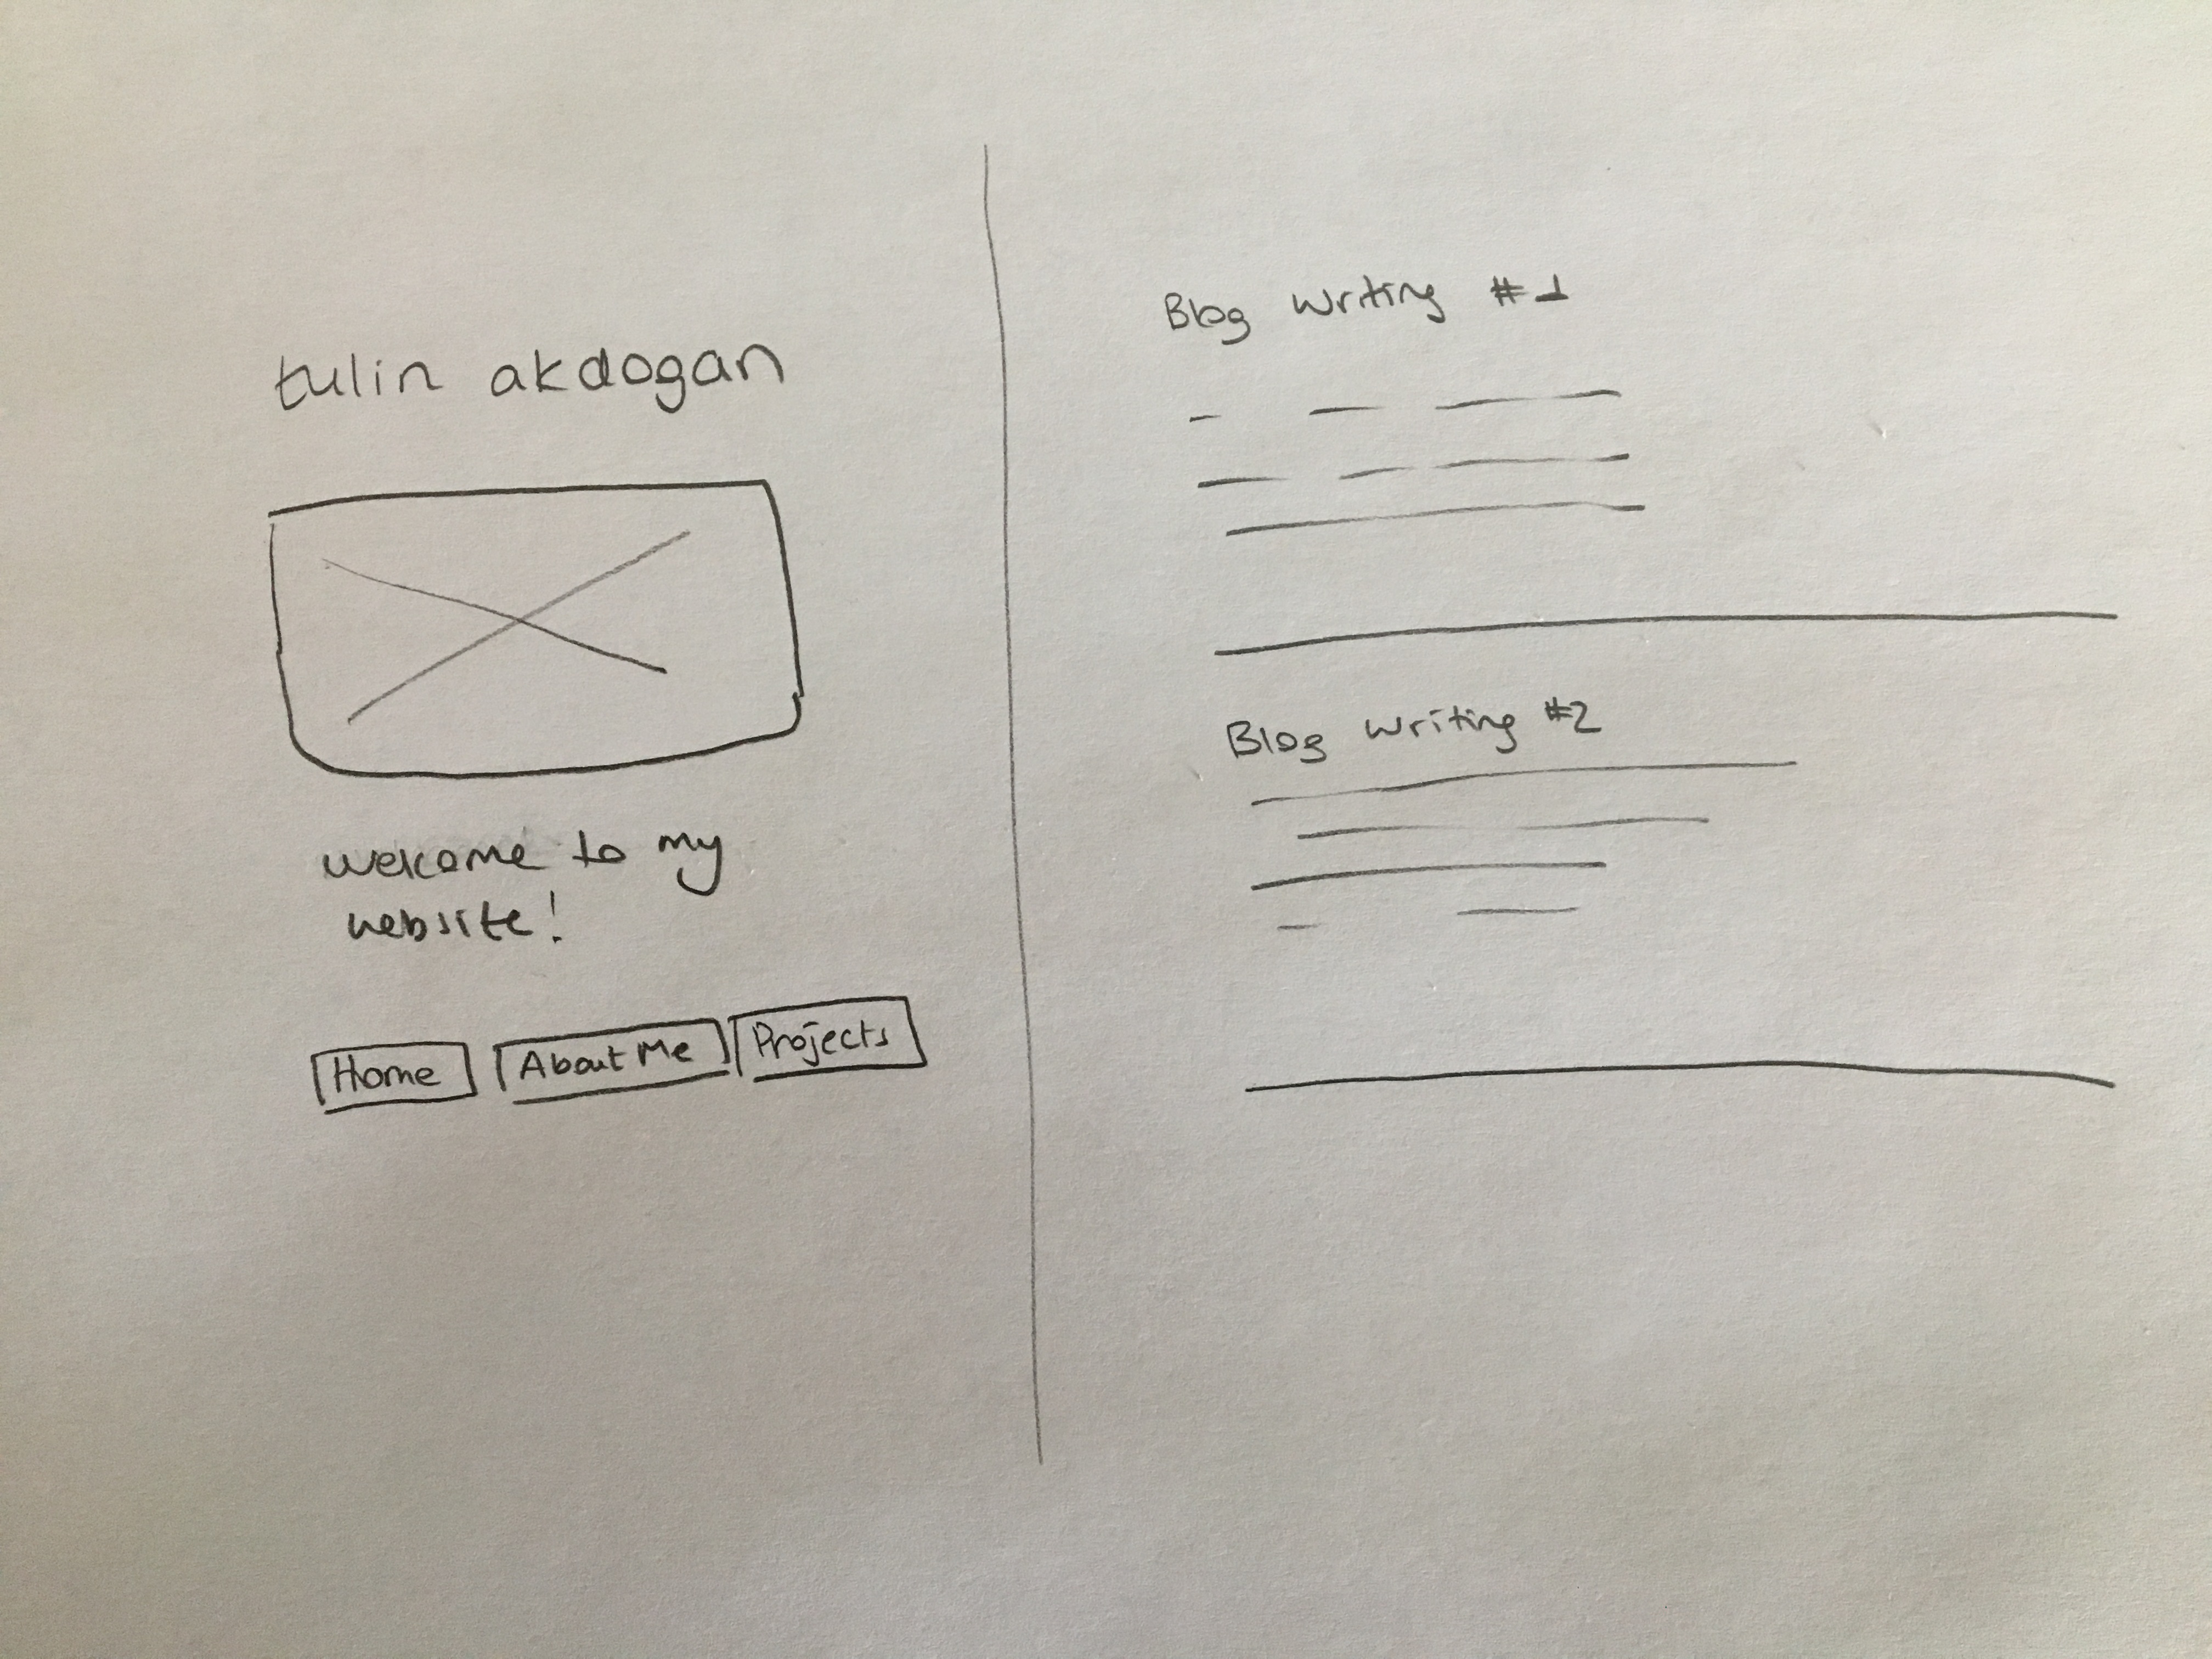 tulin akdogan
welcome to my
website!
Home About Me Projects
Blog writing #1
Blog writing #2